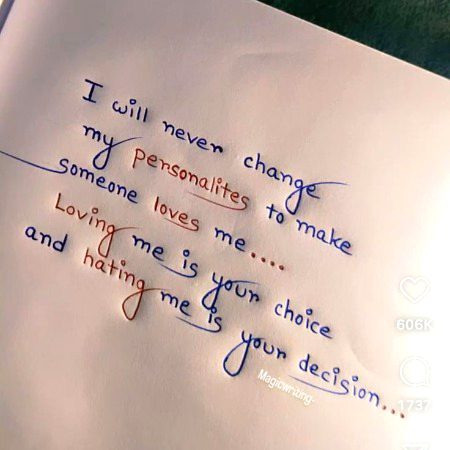 I will never change
my personalites to make
someone loves me....
Loving me is your choice
and hating me is your decision...
Magicwriting-
606K
1737